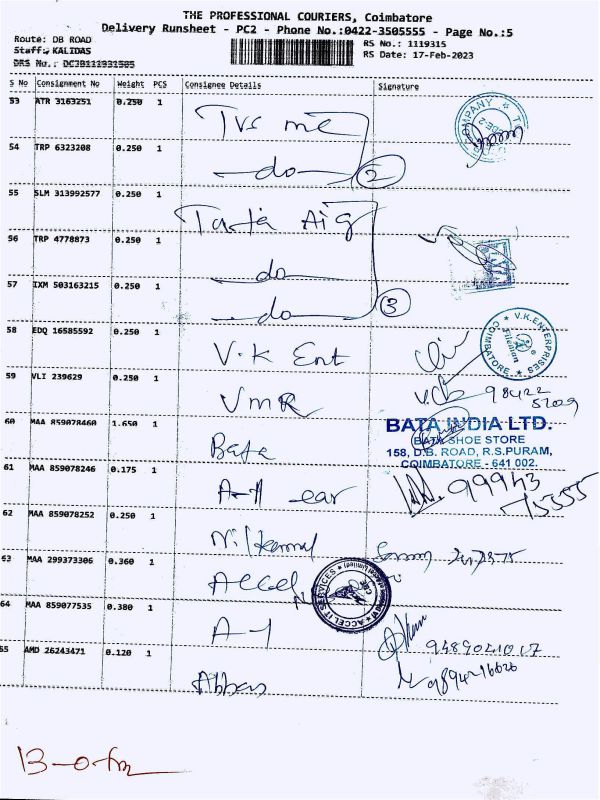 THE PROFESSIONAL COURIERS, Coimbatore
Delivery Runsheet - PC2 - Phone No.:0422-3505555 - Page No.:5
Route: DB ROAD
Staff: KALIDAS
DRS No.: DCJB111931505
RS No.: 1119315
RS Date: 17-Feb-2023
S No Consignment No Weight PCS Consignee Details Signature
53 ATR 3163251 0.250 1 Tvs me
54 TRP 6323208 0.250 1 -do- 2
55 SLM 313992577 0.250 1 Tata Aig
56 TRP 4778873 0.250 1 do
57 IXM 503163215 0.250 1 do 3
58 EDQ 16585592 0.250 1 V.K Ent
V.K.ENTERPRISES
COIMBATORE
59 VLI 239629 0.250 1 VMR
60 MAA 859078460 1.650 1 Bata
BATA INDIA LTD.
BATA SHOE STORE
158, D.B. ROAD, R.S.PURAM,
COIMBATORE - 641 002.
61 MAA 859078246 0.175 1 A-1 ear 99943
75555
62 MAA 859078252 0.250 1
63 MAA 299373306 0.360 1 Accel
ACCEL IT SERVICES
64 MAA 859077535 0.380 1 A-1
65 AMD 26243471 0.120 1 Abbas